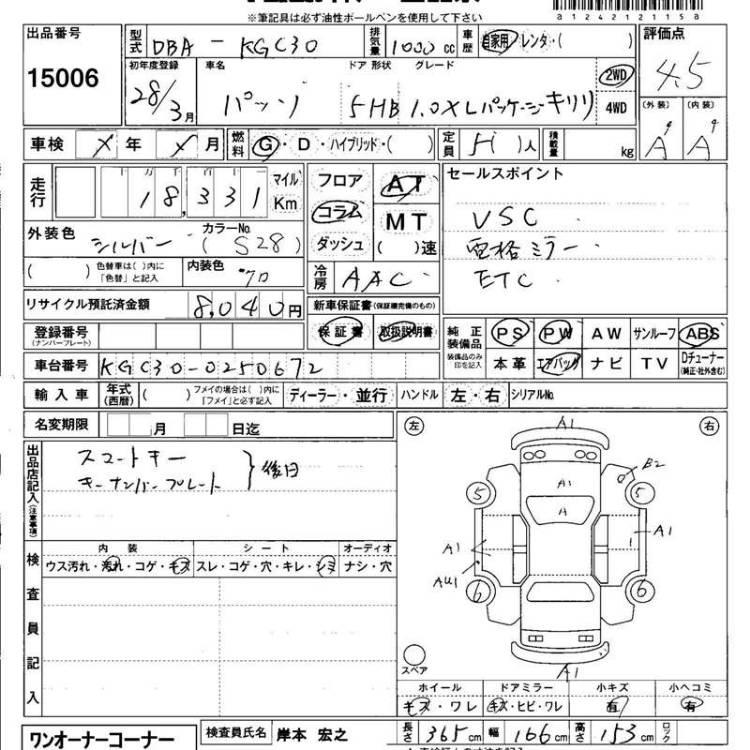 ※筆記具は必ず油性ボールペンを使用して下さい
a12421211158
出品番号
15006
型式 DBA - KGC30
排気量 1000 cc
車歴 自家用・レンタ・( )
評価点
4.5
初年度登録 車名 ドア 形状 グレード
28/3月 パッソ 5HB 1.0XLパッケージキリリ
2WD
4WD
(外装) (内装)
A A
車検 × 年 × 月
燃料 G・D・ハイブリッド・( )
定員 5 人
積載量 kg
走行 十 万 千 百
18,331 マイル Km
外装色 シルバー
カラーNo. (S28)
( ) 色替車は( )内に「色替」と記入
内装色
リサイクル預託済金額 8,040円
フロア
コラム
ダッシュ
AT
MT
( )速
冷房 AAC
新車保証書(保証継続完備のもの)
保証書 取扱説明書
セールスポイント
VSC
電格ミラー
ETC
登録番号
(ナンバープレート)
純正装備品
装備品のみ印を記入
PS PW AW サンルーフ ABS
本革 エアバッグ ナビ TV Dチューナー
(純正・社外含む)
車台番号 KGC30-0250672
輸入車 年式(西暦) ( ) フメイの場合は( )内に「フメイ」と必ず記入 ディーラー・並行 ハンドル 左・右 シリアルNo.
名変期限 月 日迄
出品店記入(注意事項)
スマートキー
キーナンバープレート
後日
左 右
A1
B2
A1
A
5 5
A1
A1
AU1
6 6
スペア
A1
検査員記入
内装 シート オーディオ
ウス汚れ・汚れ・コゲ・キズ スレ・コゲ・穴・キレ・シミ ナシ・穴
ホイール ドアミラー 小キズ 小ヘコミ
キズ・ワレ キズ・ヒビ・ワレ 有 有
ワンオーナーコーナー
検査員氏名 岸本 宏之
長さ 365cm 幅 166cm 高さ 153cm ロック